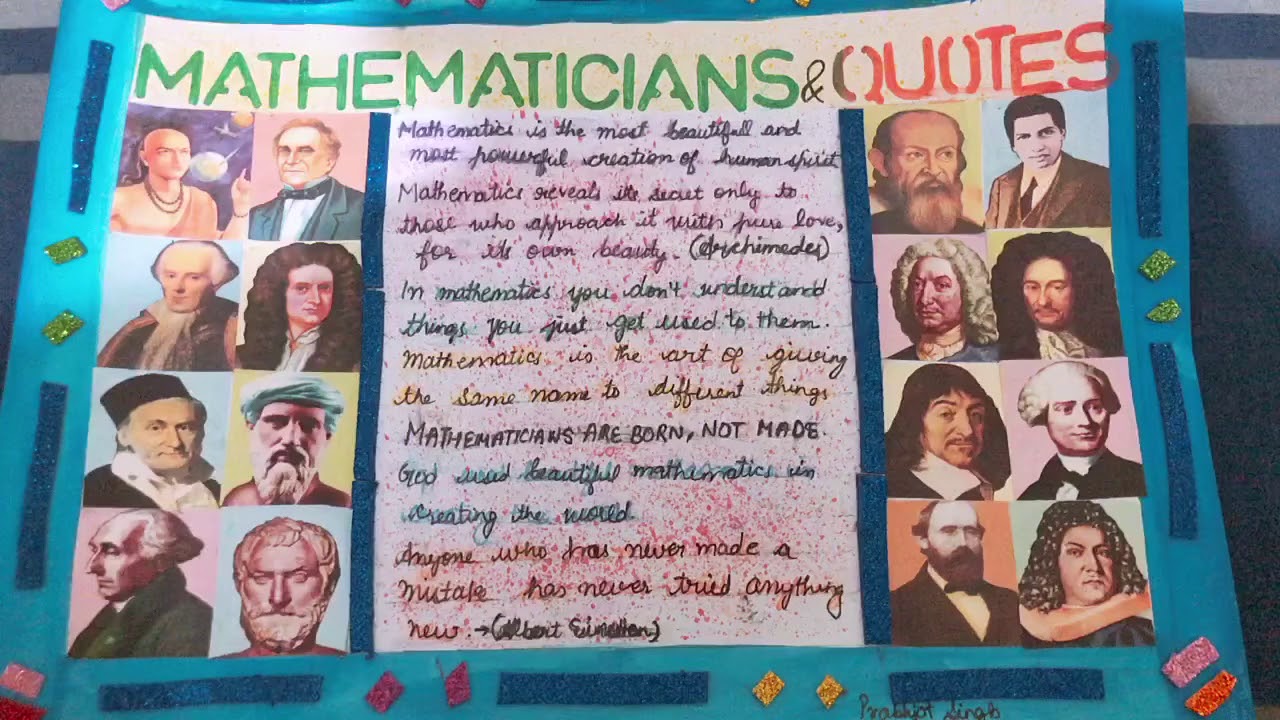 MATHEMATICIANS & QUOTES
Mathematics is the most beautifull and
most powerful creation of human spirit
Mathematics reveals its secret only to
those who approach it with pure love,
for its own beauty. (Archimedes)
In mathematics you don't understand
things you just get used to them.
Mathematics is the art of giving
the same name to different things
MATHEMATICIANS ARE BORN, NOT MADE.
God used beautiful mathematics in
creating the world.
Anyone who has never made a
mistake has never tried anything
new. → (Albert
Prabhjot Singh